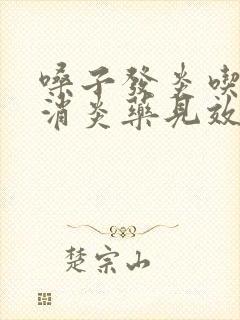 嗓子發炎喫
消炎藥見效
楚宗山